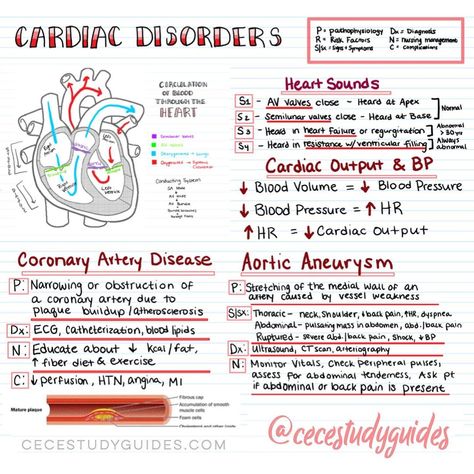 CARDIAC DISORDERS
P = pathophysiology Dx = Diagnosis
R = Risk Factors N = Nursing management
S|Sx = Signs + Symptoms C = Complications
CIRCULATION
OF BLOOD
THROUGH THE
HEART
Semilunar valves
Conducting System
SA Node
AV Node
Heart Sounds
S1 - AV valves close - Heard at Apex
S2 - Semilunar valves close - Heard at Base
Normal
S3 - Heard in heart failure or regurgitation
Abnormal
> 30 yrs
S4 - Heard in resistance w/ventricular filling
Always
abnormal
Cardiac Output & BP
↓ Blood Volume = ↓ Blood Pressure
↓ Blood Pressure = ↑ HR
↑ HR = ↓ Cardiac Output
Coronary Artery Disease
P: Narrowing or obstruction of
a coronary artery due to
plaque buildup/atherosclerosis
Dx: ECG, Catheterization, blood lipids
N: Educate about ↓ kcal/fat,
↑ fiber diet & exercise
C: ↓ perfusion, HTN, angina, MI
Mature plaque
Fibrous cap
Accumulation of smooth
muscle cells
Foam cells
Cholesterol and other lipids
CECESTUDYGUIDES.COM
Aortic Aneurysm
P: Stretching of the medial wall of an
artery caused by vessel weakness
S|Sx: Thoracic - neck, shoulder, ↓ back pain, ↑HR, dyspnea
Abdominal - pulsating mass in abdomen, abd./back pain
Ruptured - severe abd./back pain, shock, ↓BP
Dx: Ultrasound, CT scan, arteriography
N: Monitor Vitals, Check peripheral pulses,
assess for abdominal tenderness, Ask pt
if abdominal or back pain is present
@cecestudyguides